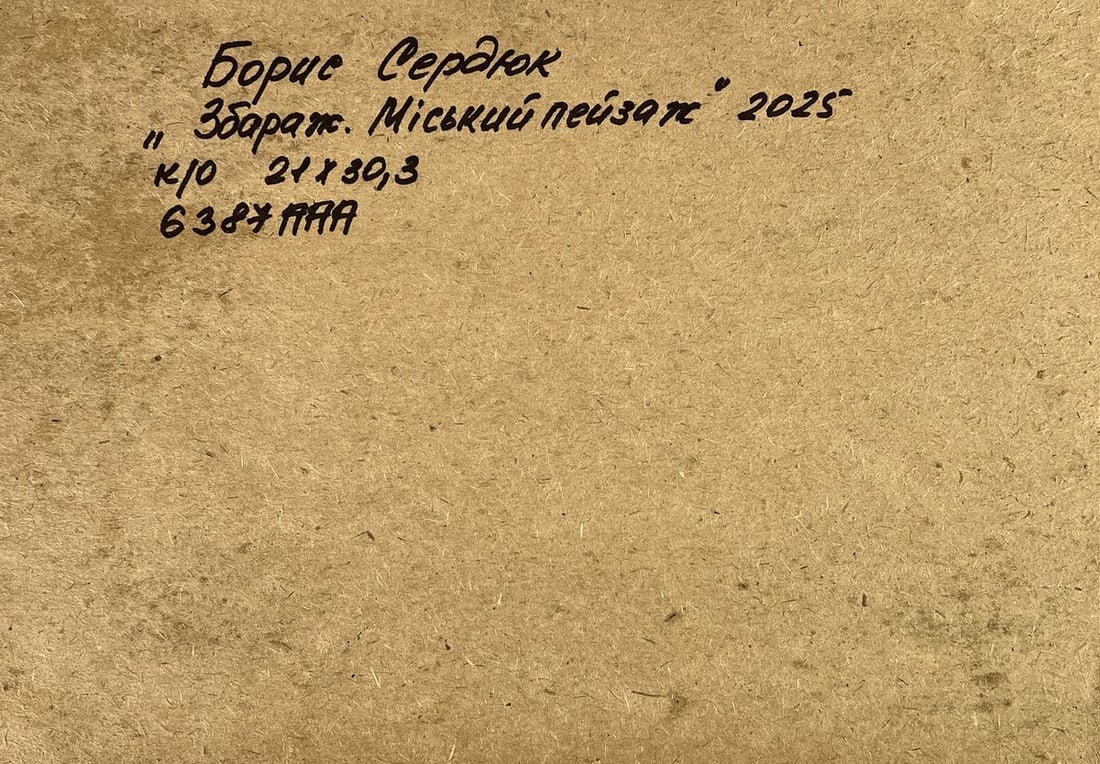 Борис Сердюк
„Збараж. Міський пейзаж" 2025
к/о 21х30,3
6387ААА